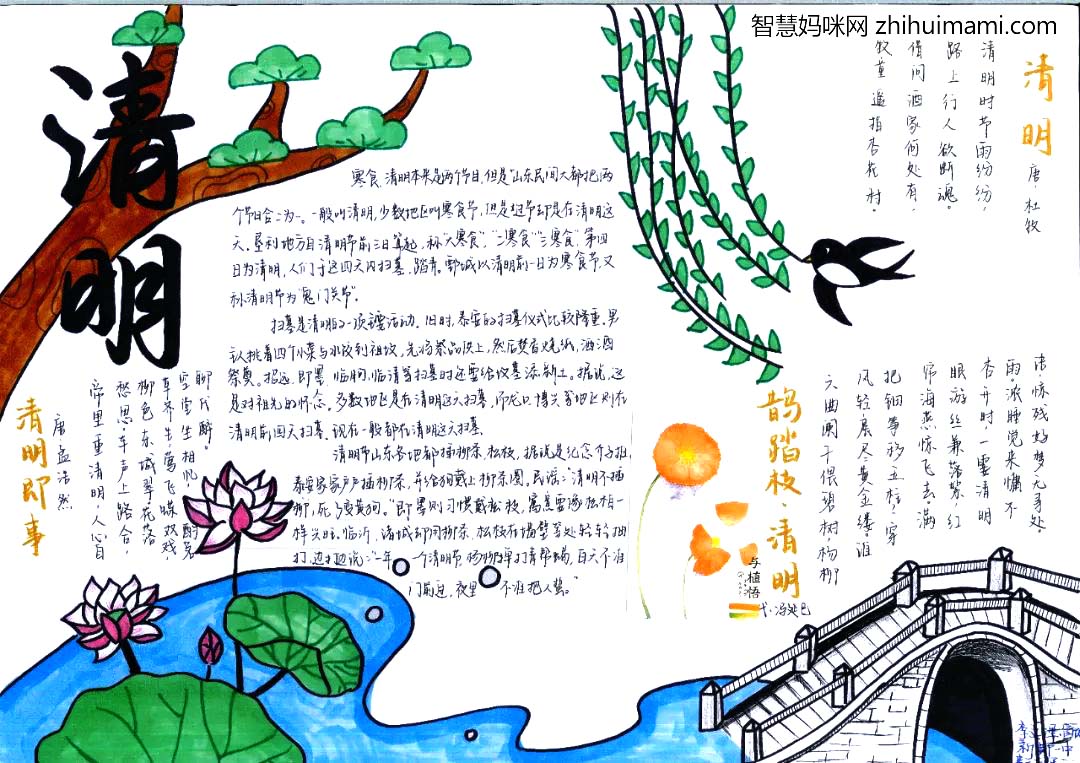 智慧妈咪网 zhihuimami.com
清明
清明
唐·杜牧
清明时节雨纷纷，
路上行人欲断魂。
借问酒家何处有，
牧童遥指杏花村。
寒食、清明本来是两个节日，但是山东民间大都把两
个节日合二为一。一般叫清明，少数地区叫寒食节，但是过节却是在清明这
天。垦利地方自清明节前三日算起，称“大寒食”，“二寒食”“三寒食”第四
日为清明，人们于这四天内扫墓、踏青。鄄城以清明前一日为寒食节，又
称清明节为“鬼门关节”。
扫墓是清明的一项重要活动。旧时，泰安的扫墓仪式比较隆重，男
人挑着四个小菜与水饺到祖坟，先将祭品供上，然后焚香烧纸，洒酒
祭奠。招远、即墨、临朐、临清等扫墓时还要给坟墓添新土。据说，这
是对祖先的怀念。多数地区是在清明这天扫墓，而龙口、博兴等地区则在
清明前四天扫墓。现在一般都在清明这天扫墓。
清明节山东各地都插柳条、松枝，据说是纪念介子推，
泰安家家户户插柳条，并给狗戴上柳条圈。民谣：“清明不插
柳，死了变黄狗。”即墨则习惯戴松枝，寓意要像松柏一
样兴旺。临沂、诸城却用柳条、松枝在墙壁等处轻轻抽
打，边打边说：“一年一个清明节，杨柳单打青帮蝎，白天不准
门前过，夜里不准把人蜇。”
鹊踏枝·清明
清 冯延巳
六曲阑干偎碧树，杨柳
风轻，展尽黄金缕。谁
把钿筝移玉柱？穿
帘海燕惊飞去。满
眼游丝兼落絮，红
杏开时，一霎清明
雨。浓睡觉来慵不
语，惊残好梦无寻处。
与植悟
清明即事
唐 孟浩然
帝里重清明，人心自
愁思。车声上路合，
柳色东城翠。花落
草齐生，莺飞蝶双戏。
空堂坐相忆，酌茗
聊代醉。